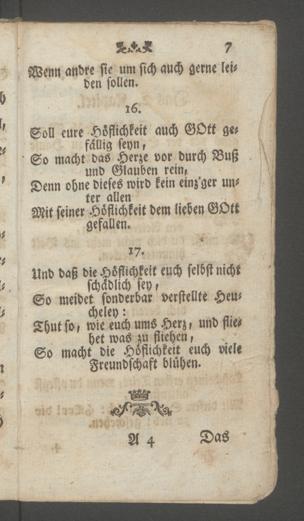 7
Wenn andre sie um sich auch gerne lei-
den sollen.
16.
Soll eure Höflichkeit auch GOtt ge-
fällig seyn,
So macht das Herze vor durch Buß
und Glauben rein,
Denn ohne dieses wird kein einz'ger un-
ter allen
Mit seiner Höflichkeit dem lieben GOtt
gefallen.
17.
Und daß die Höflichkeit euch selbst nicht
schädlich sey,
So meidet sonderbar verstellte Heu-
cheley:
Thut so, wie euch ums Herz, und flie-
het was zu fliehen,
So macht die Höflichkeit euch viele
Freundschaft blühen.
A 4 Das